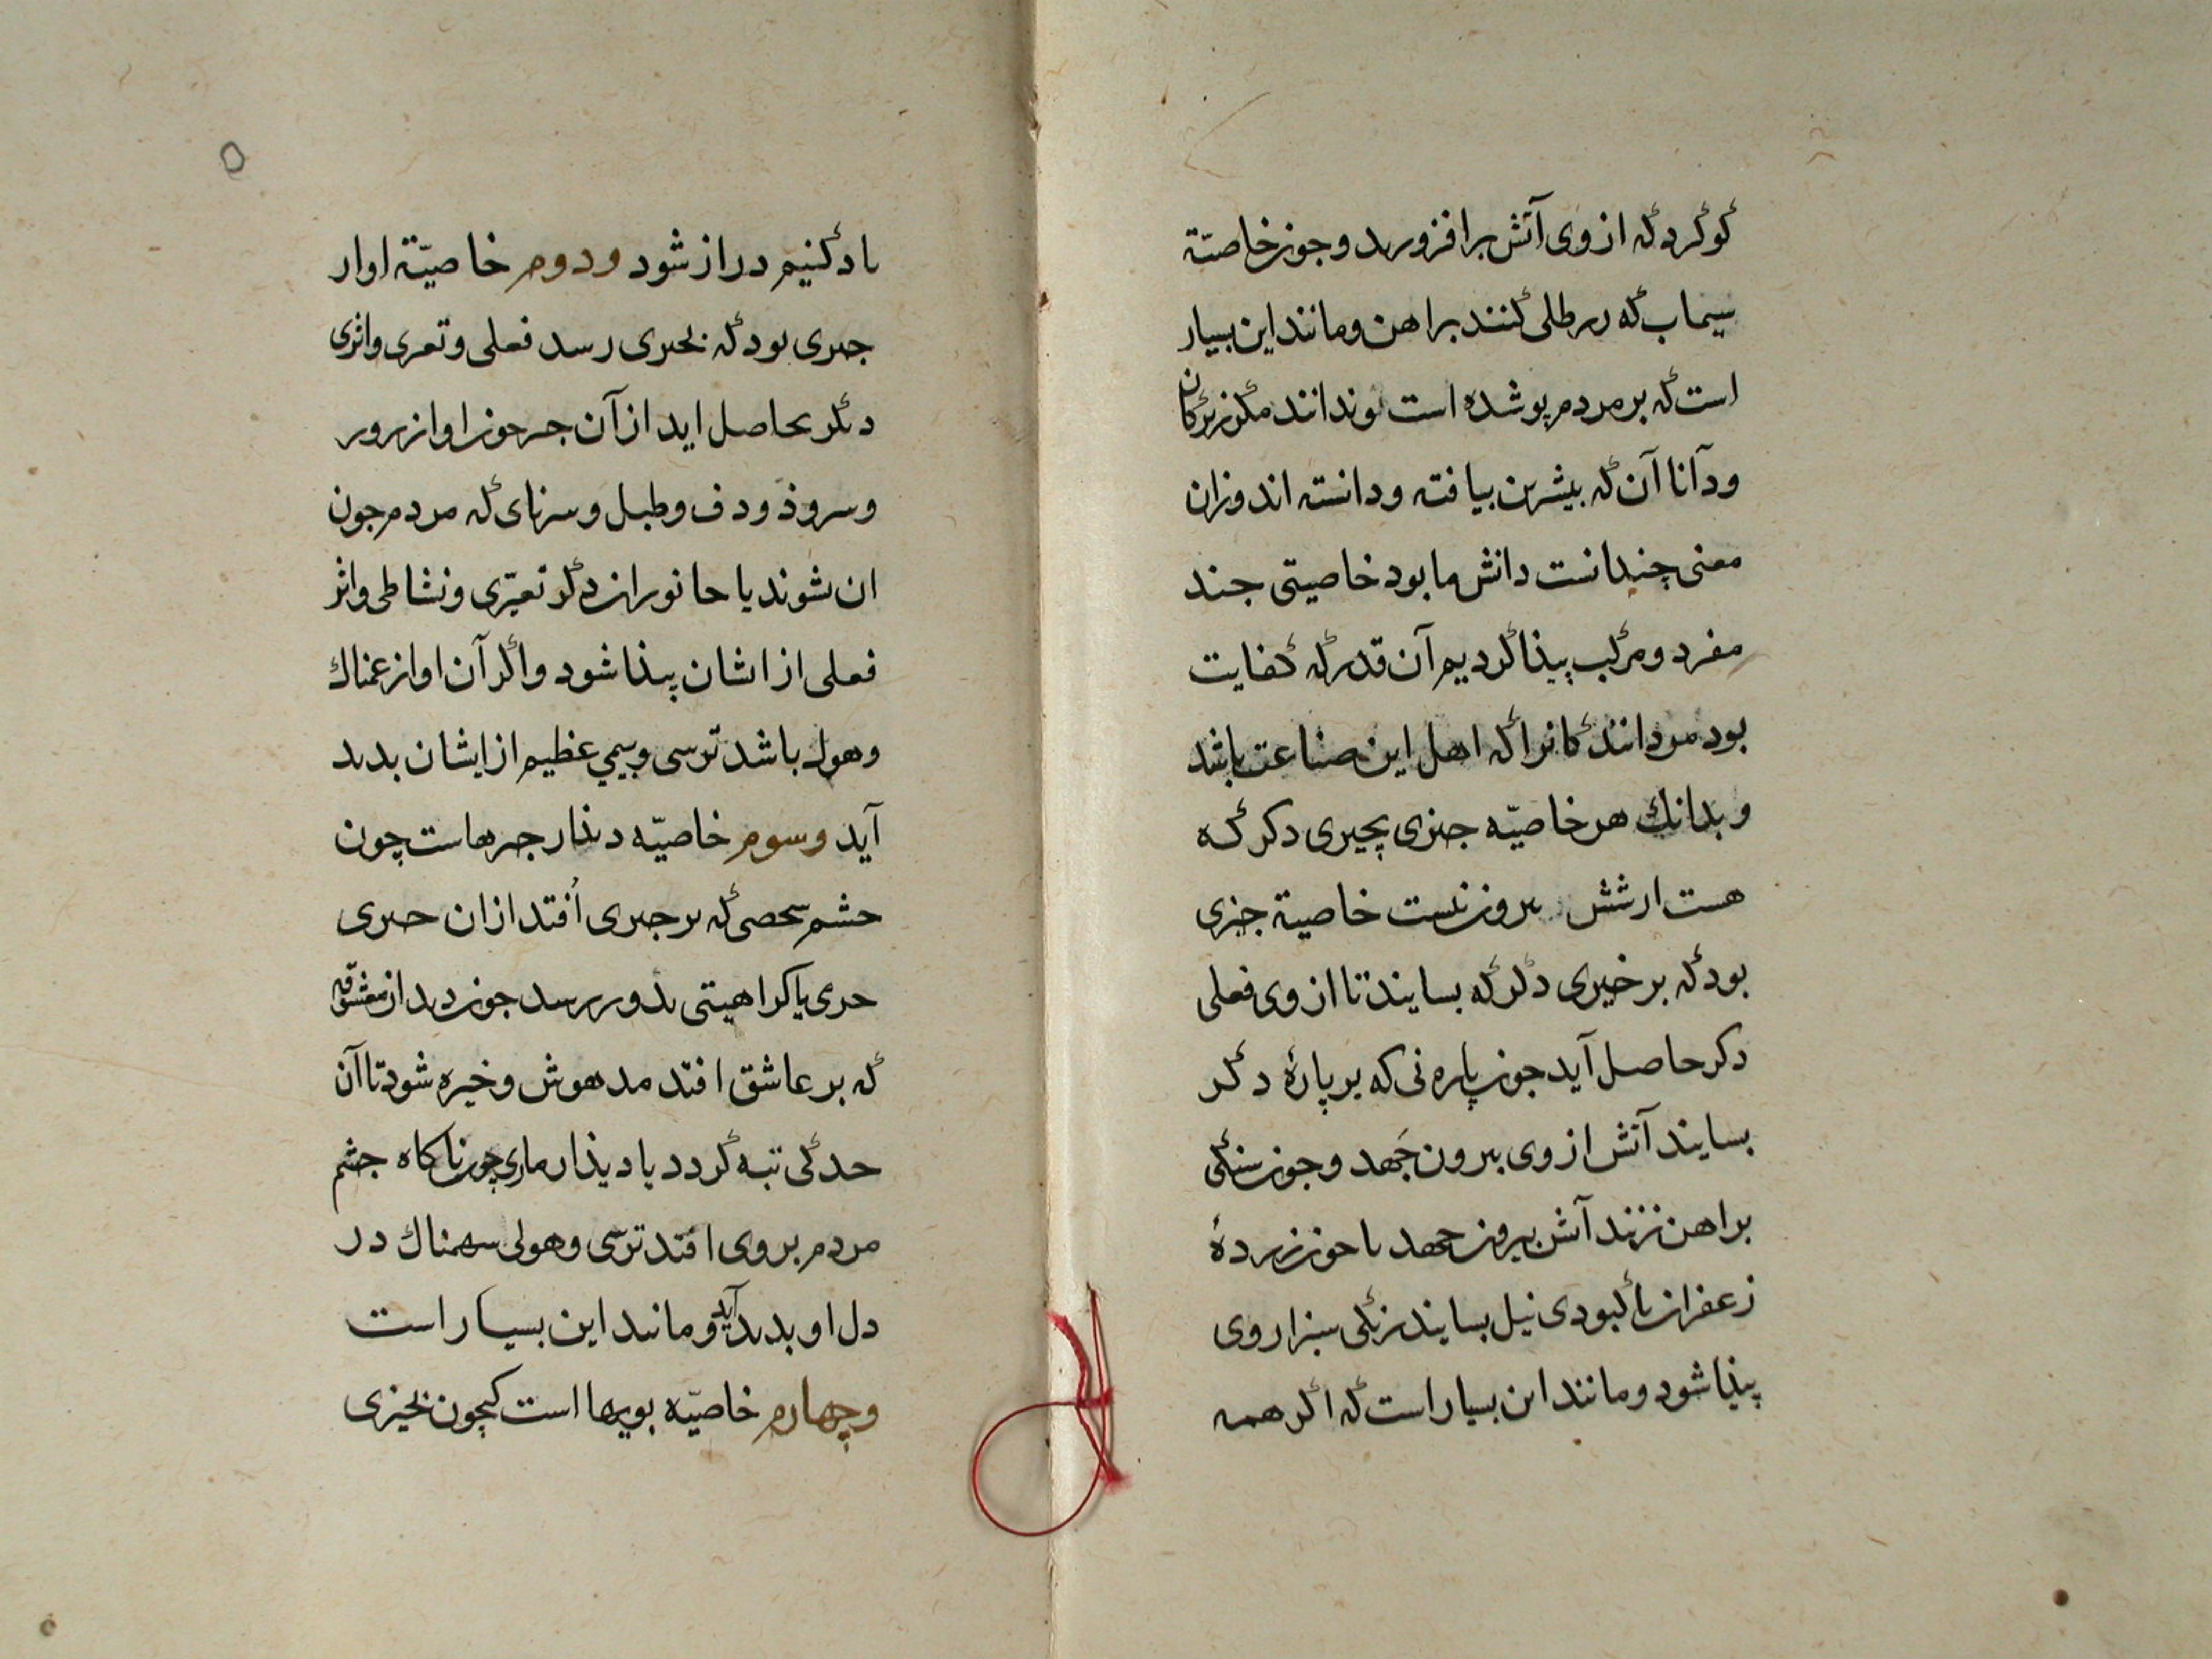 کوکرد که از وی آتش برافروزند و جون خاصیّة
سیماب که زر طلی کنند بر اهن و مانند این بسیار
است که بر مردم پوشده است وندانند مکر بزرکان
ودآنا آن که بیشترین بیافته ودانسته اند وزان
معنی چندانست دانش ما بود خاصیتی جند
مفرد و مرکب پیذا کردیم آن قدر که کفایت
بود مر دانندکانرا که اهل این صناعت باشد
و بدانك هر خاصیّه جیزی بچیزی دکر که
هست از شش بیرون نیست خاصیة جیزی
بود که بر خیزی دکر که بسایند تا از وی فعلی
دکر حاصل آید جون پاره نی که بر پارهٔ دکر
بسایند آتش از وی بیرون جَهد و جون سنکی
بر اهن زنند آتش بیرون جهد یا جون زردهٔ
زعفران با کبودی نیل بسایند رنکی سبز از وی
پیذا شود و مانند این بسیار است که اکر همه
یاد کنیم دراز شود و دوم خاصیّة اواز
جیزی بود که بخیزی رسد فعلی و تغیری و اثری
دکر بحاصل اید از آن جیز جون اواز رور
و سروذ و دف و طبل و سرنای که مردم جون
ان شوند یا جانوران دکر تغیّری و نشاطی و اثر
فعلی از اشان پیذا شود و اکر آن اواز غمناك
و هول باشد ترسی و بیمی عظیم از ایشان بدید
آید و سوم خاصیّه دیذار جیزهاست چون
جشم شخصی که بر جیزی اُفتد از ان جیزی
حری یا کراهیتی بدو رسد جون دیدار معشوقه
که بر عاشق افتد مدهوش و خیره شود تا آن
حد کی تبه کردد یا دیذار ماری چون ناکاه جشم
مردم بر وی افتد ترسی و هولی سهمناك در
دل او بدید آید و مانند این بسیار است
و چهارم خاصیّه بویها است کچون بخیزی